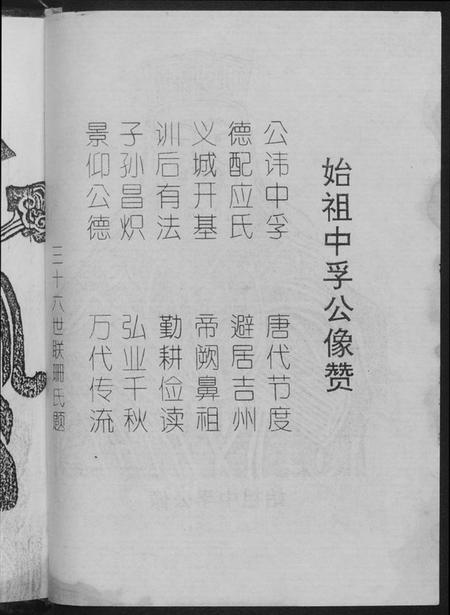 始祖中孚公像赞
公讳中孚 唐代节度
德配应氏 避居吉州
义城开基 帝阙鼻祖
训后有法 勤耕俭读
子孙昌炽 弘业千秋
景仰公德 万代传流
三十六世联珊氏题